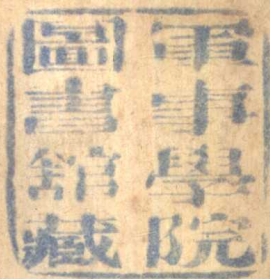 軍事學院
圖書館藏